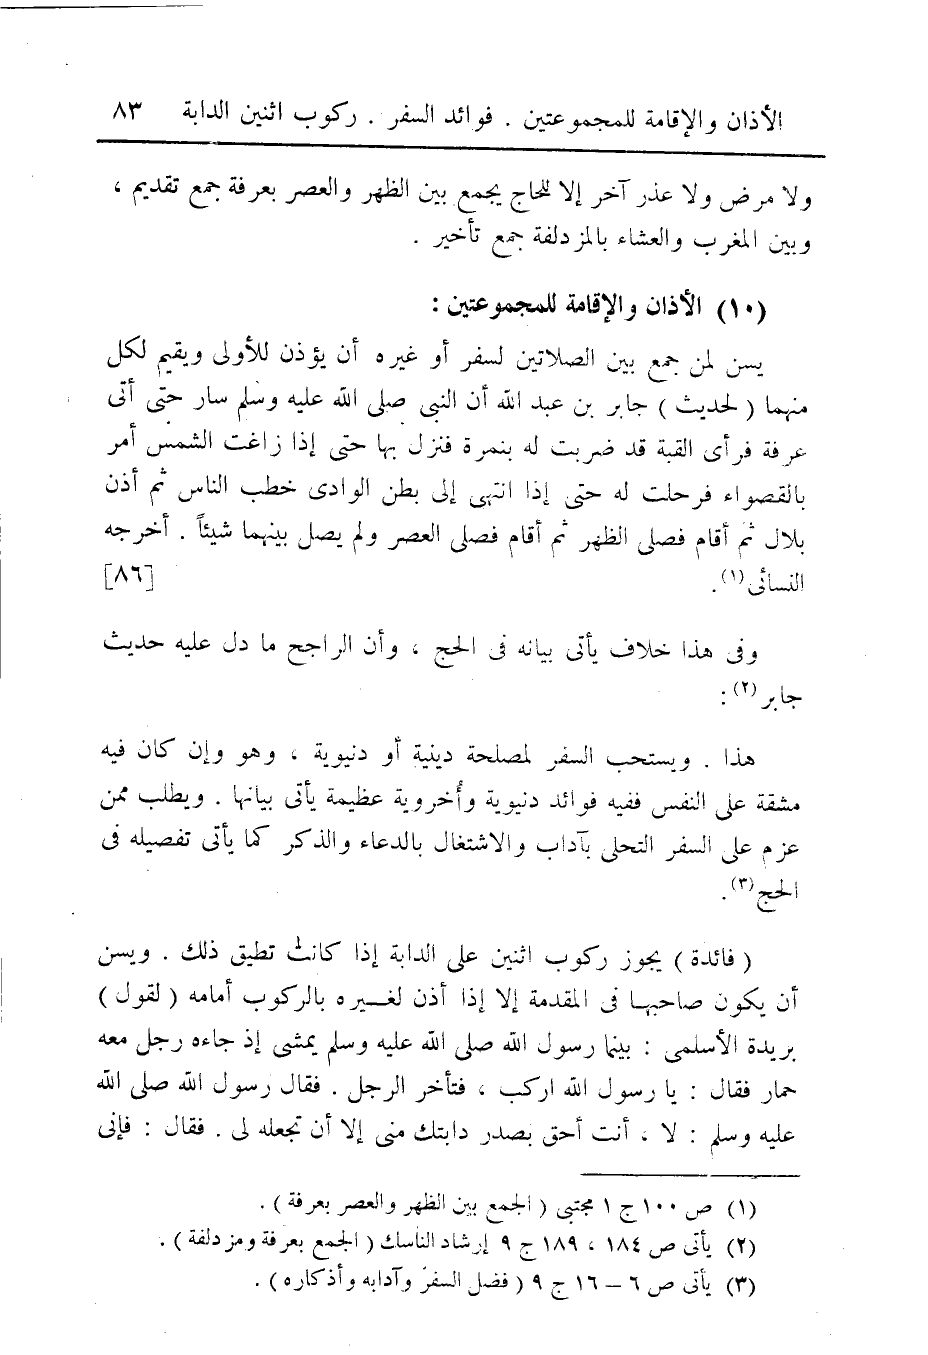 الأذان والإقامة للمجموعتين . فوائد السفر . ركوب اثنين الدابة ٨٣
ولا مرض ولا عذر آخر إلا للحاج يجمع بين الظهر والعصر بعرفة جمع تقديم ،
وبين المغرب والعشاء بالمزدلفة جمع تأخير .
(١٠) الأذان والإقامة للمجموعتين :
يسن لمن جمع بين الصلاتين لسفر أو غيره أن يؤذن للأولى ويقيم لكل
منهما ( لحديث ) جابر بن عبد الله أن النبى صلى الله عليه وسلم سار حتى أتى
عرفة فرأى القبة قد ضربت له بنمرة فنزل بها حتى إذا زاغت الشمس أمر
بالقصواء فرحلت له حتى إذا انتهى إلى بطن الوادى خطب الناس ثم أذن
بلال ثم أقام فصلى الظهر ثم أقام فصلى العصر ولم يصل بينهما شيئاً . أخرجه
النسائى(١). [٨٦]
وفى هذا خلاف يأتى بيانه فى الحج ، وأن الراجح ما دل عليه حديث
جابر(٢):
هذا . ويستحب السفر لمصلحة دينية أو دنيوية ، وهو وإن كان فيه
مشقة على النفس ففيه فوائد دنيوية وأُخروية عظيمة يأتى بيانها . ويطلب ممن
عزم على السفر التحلى بآداب والاشتغال بالدعاء والذكر كما يأتى تفصيله فى
الحج(٣).
( فائدة ) يجوز ركوب اثنين على الدابة إذا كانت تطيق ذلك . ويسن
أن يكون صاحبها فى المقدمة إلا إذا أذن لغيره بالركوب أمامه ( لقول )
بريدة الأسلمى : بينما رسول الله صلى الله عليه وسلم يمشى إذ جاءه رجل معه
حمار فقال : يا رسول الله اركب ، فتأخر الرجل . فقال رسول الله صلى الله
عليه وسلم : لا ، أنت أحق بصدر دابتك منى إلا أن تجعله لى . فقال : فإنى
(١) ص ١٠٠ ج ١ مجتبى ( الجمع بين الظهر والعصر بعرفة ) .
(٢) يأتى ص ١٨٤ ، ١٨٩ ج ٩ إرشاد الناسك ( الجمع بعرفة ومزدلفة ) .
(٣) يأتى ص ٦ – ١٦ ج ٩ ( فضل السفر وآدابه وأذكاره ) .